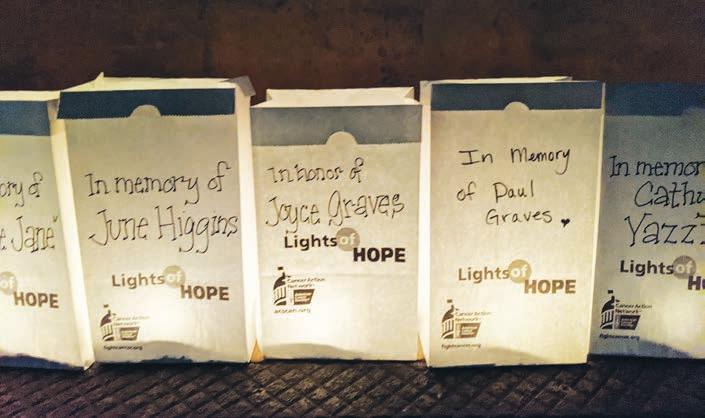 ory of
e Jane"
of
HOPE
In memory of
June Higgins
Lights of
HOPE
Cancer Action
Network
fightcancer.org
In honor of
Joyce Graves
Lights of
HOPE
Cancer Action
Network
acscan.org
In Memory
of Paul
Graves
Lights of
HOPE
Cancer Action
Network
fightcancer.org
In memor
Cathy
Yazzi
Lights of
H
Cancer Action
Network
fightcancer.org